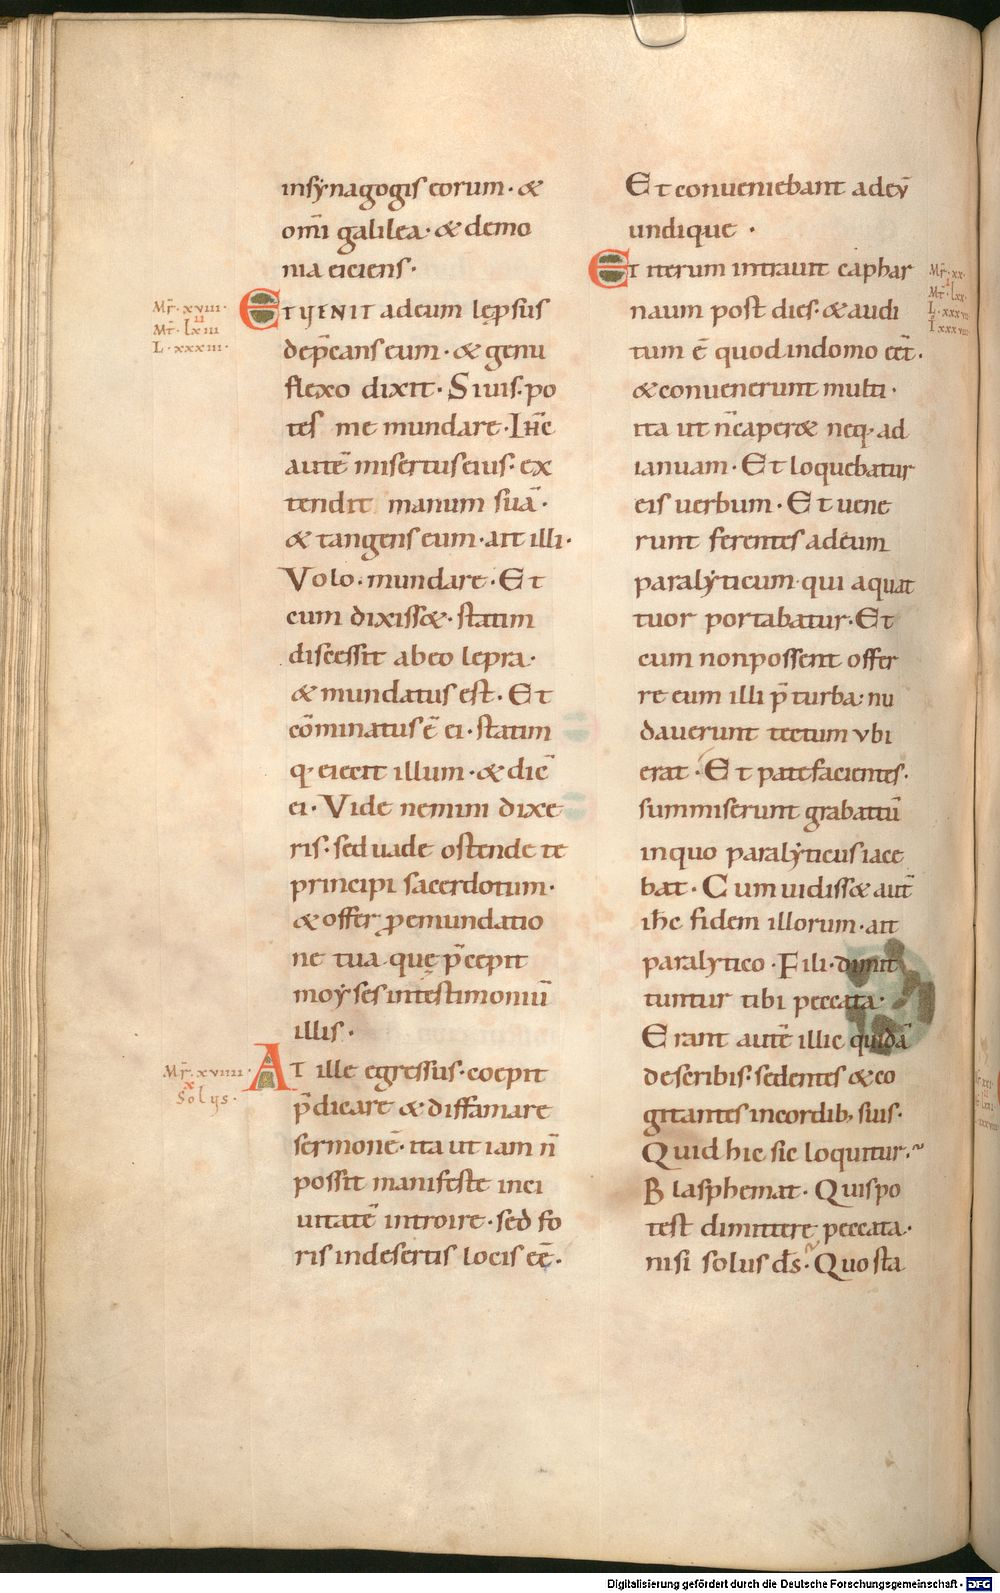 insynagogis eorum · &
om̄i galilea · & demo
nia eiciens ·
Mr̄ · xviii ·
ii
Mt̄ · lxiii
L · xxxiii ·
ET VENIT adeum lep̄sus
dep̄cans eum · & genu
flexo dixit · Siuis · po
tes me mundare · IH̄C
autē misertus eius · ex
tendit manum suā ·
& tangens eum · ait illi ·
Volo · mundare · Et
cum dixiss& · statim
discessit abeo lepra ·
& mundatus est · Et
cōminatus ē ei · statim
q · eiecit illum · & dic̄
ei · Vide nemini dixe
ris · sed uade ostende te
principi sacerdotum ·
& offer ꝓemundatio
ne tua que p̄cepit
moyses intestimoniū
illis ·
Mr̄ · xviiii ·
x
Solus ·
AT ille egressus · coepit
p̄dicare & diffamare
sermonē · ita ut iam n̄
possit manifeste inci
uitatē introire · sed fo
ris indesertis locis eē ·
Et conueniebant adeū
undique ·
ET iterum intrauit caphar
Mr̄ · xx ·
i
Mt̄ · lxx
L · xxxvii
I xxxviii
naum post dies · & audi
tum ē quod indomo eēt ·
& conuenerunt multi ·
ita ut n̄ caper& neq · ad
ianuam · Et loquebatur
eis uerbum · Et uene
runt ferentes adeum
paralyticum qui aquat
tuor portabatur · Et
cum nonpossent offer
re eum illi p̄ turba · nu
dauerunt tectum vbi
erat · Et patefacientes ·
summiserunt grabattū
inquo paralyticus iace
bat · Cum uidiss& aut̄
ih̄c fidem illorum · ait
paralytico · Fili · dimit
tuntur tibi peccata ·
Erant autē illic quidā
describis · sedentes & co
gitantes incordib; suis ·
Quid hic sic loquitur ·~
Blasphemat · Quis po
test dimittere peccata ·
nisi solus d̄s · Quo sta
Digitalisierung gefördert durch die Deutsche Forschungsgemeinschaft - DFG